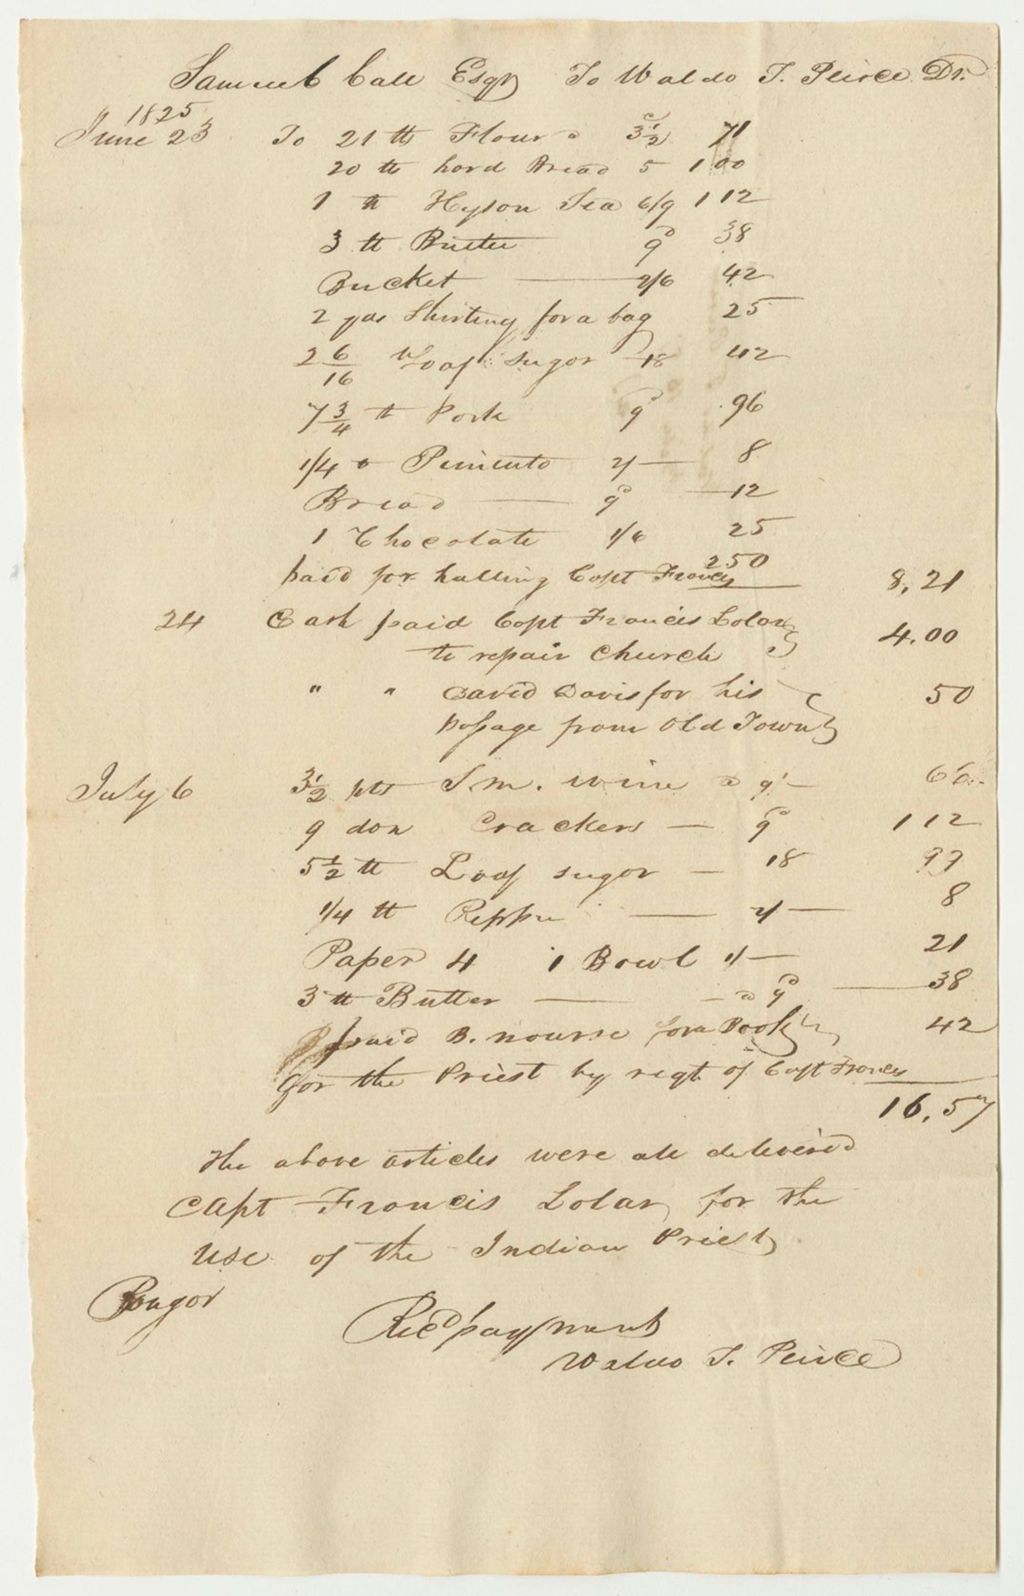 Samuel Call Esqr To Waldo T. Peirce Dr.
1825
June 23 To 21 lb Flour a 3½ c 71
20 lb hard Bread 5 1 00
1 lb Hyson Tea 6/9 1 12
3 lb Butter 9d 38
Bucket 2/6 42
2 yds Shirting for a bag 25
2 6/16 Loaf sugar 18 42
7¾ lb Pork 9d .96
1/4 " Pimento 2/ 8
Bread 9d 12
1 Chocolate 1/6 25
paid for halling Capt Frances 2 50 8,21
24 Cash paid Capt Francis Lolar
to repair Church 4.00
" " David Davis for his
passage from Old Town 50
July 6 3½ pts S.M. wine a 9d 66
9 doz Crackers 9d 1 12
5½ lb Loaf sugar 18 99
1/4 lb Peppr 2/ 8
Paper 4 1 Bowl 1/ 21
3 lb Butter a 9d 38
paid B. nourse for a Book 42
for the Priest by reqt of Capt Frances
16,57
The above articles were all deliverd
Capt Francis Lolar for the
use of the Indian Priest
Bangor
Recd payment
Waldo T. Peirce